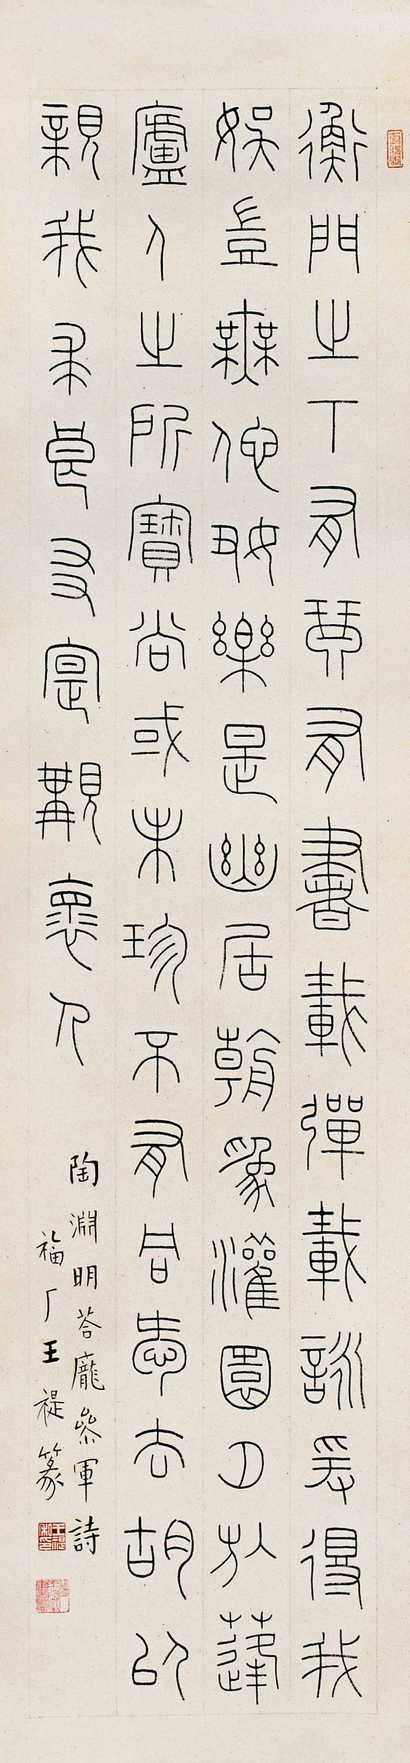 衡門之下有琴有書載彈載詠爰得我
娛豈無他好樂是幽居朝為灌園夕偃蓬
廬人之所寶尚或未珍不有同愛云胡以
親我求良友實覯懷人
陶淵明荅龐參軍詩
福厂王禔篆